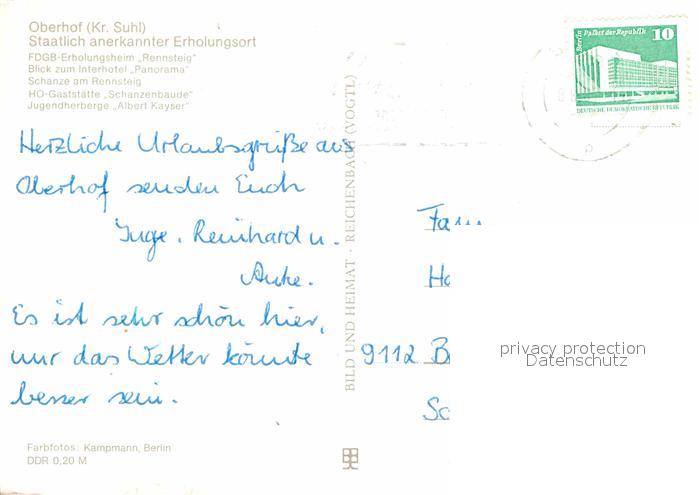 Oberhof (Kr. Suhl)
Staatlich anerkannter Erholungsort
FDGB-Erholungsheim „Rennsteig"
Blick zum Interhotel „Panorama"
Schanze am Rennsteig
HO-Gaststätte „Schanzenbaude"
Jugendherberge „Albert Kayser"
Herzliche Urlaubsgrüße aus
Oberhof senden Euch
Inge, Reinhard u.
Anke.
Es ist sehr schön hier,
nur das Wetter könnte
besser sein.
Farbfotos: Kampmann, Berlin
DDR 0,20 M
BILD UND HEIMAT · REICHENBACH (VOGTL)
Berlin Palast der Republik 10
DEUTSCHE DEMOKRATISCHE REPUBLIK
Fa
Ho
9112 B
Sc
privacy protection
Datenschutz